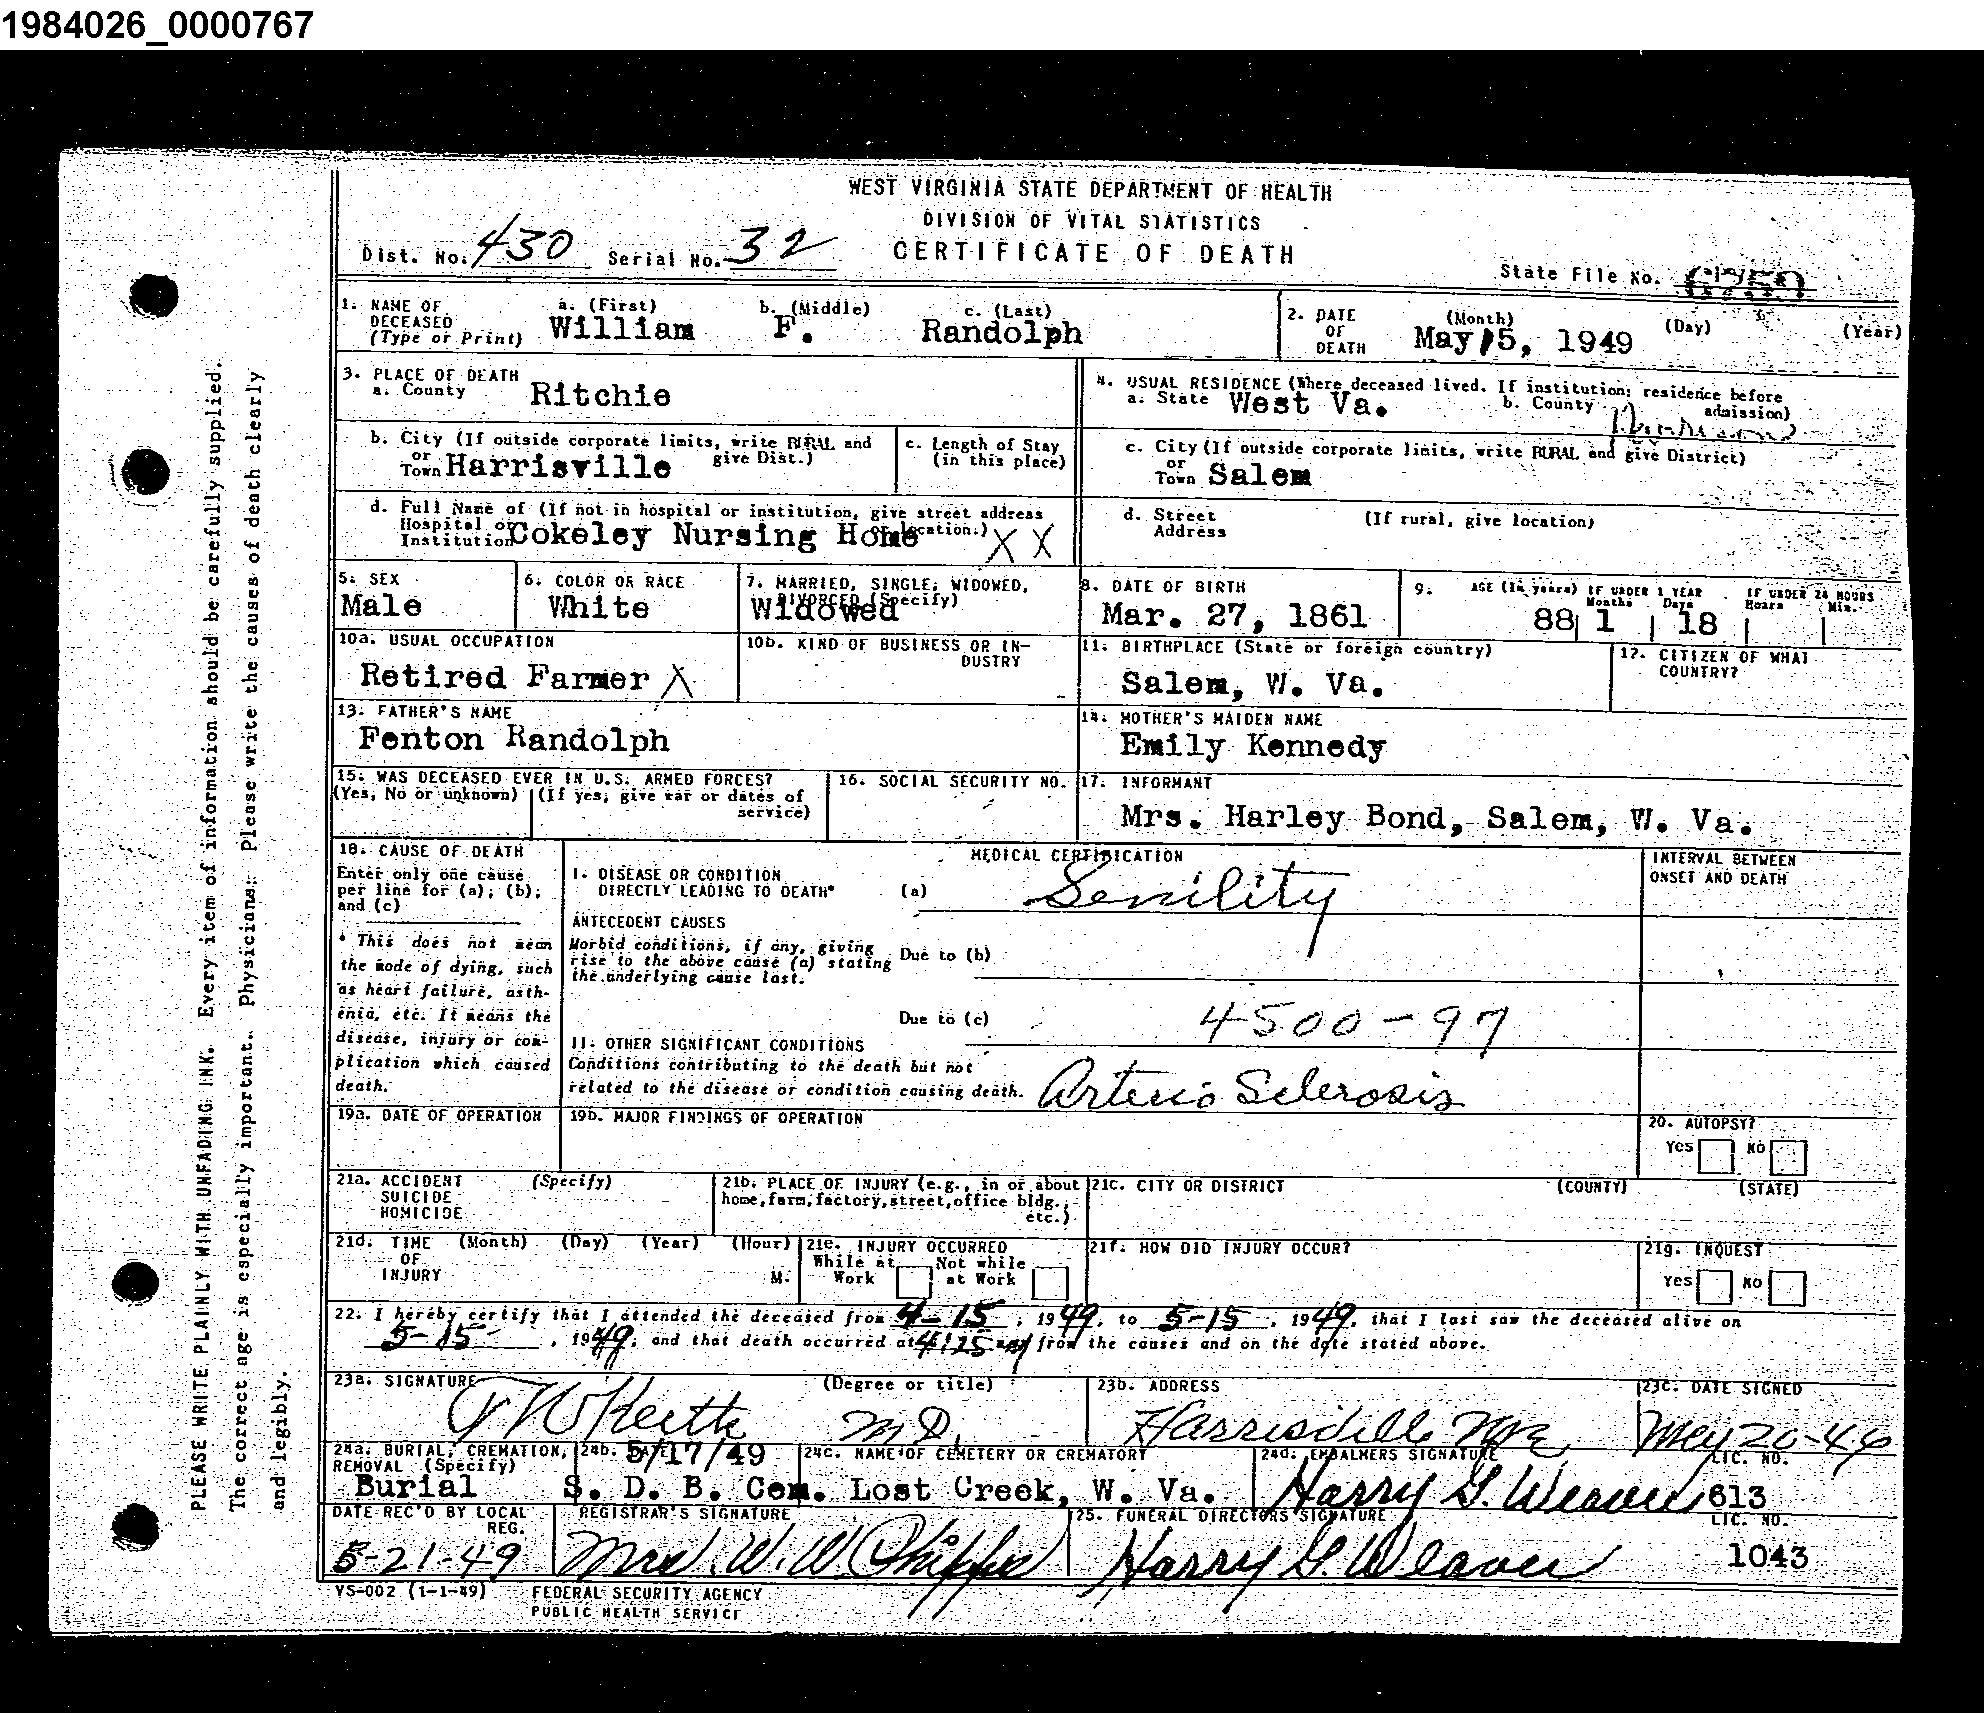 1984026_0000767
WEST VIRGINIA STATE DEPARTMENT OF HEALTH
DIVISION OF VITAL STATISTICS
Dist. No. 430 Serial No. 32 CERTIFICATE OF DEATH
State File No.
1. NAME OF DECEASED (Type or Print) a. (First) William b. (Middle) F. c. (Last) Randolph
2. DATE OF DEATH (Month) (Day) (Year) May 15, 1949
3. PLACE OF DEATH a. County Ritchie
4. USUAL RESIDENCE (Where deceased lived. If institution: residence before admission)
a. State West Va. b. County
b. City (If outside corporate limits, write RURAL and give Dist.) or Town Harrisville
c. Length of Stay (in this place)
c. City (If outside corporate limits, write RURAL and give District) or Town Salem
d. Full Name of (If not in hospital or institution, give street address or location.) Hospital or Institution Cokeley Nursing Home X X
d. Street Address (If rural, give location)
5. SEX Male
6. COLOR OR RACE White
7. MARRIED, SINGLE, WIDOWED, DIVORCED (Specify) Widowed
8. DATE OF BIRTH Mar. 27, 1861
9. AGE (In years) 88 IF UNDER 1 YEAR Months 1 Days 18 IF UNDER 24 HOURS Hours Min.
10a. USUAL OCCUPATION Retired Farmer X
10b. KIND OF BUSINESS OR INDUSTRY
11. BIRTHPLACE (State or foreign country) Salem, W. Va.
12. CITIZEN OF WHAT COUNTRY?
13. FATHER'S NAME Fenton Randolph
14. MOTHER'S MAIDEN NAME Emily Kennedy
15. WAS DECEASED EVER IN U.S. ARMED FORCES? (Yes, No or unknown) (If yes, give war or dates of service)
16. SOCIAL SECURITY NO.
17. INFORMANT Mrs. Harley Bond, Salem, W. Va.
18. CAUSE OF DEATH
Enter only one cause per line for (a), (b), and (c)
* This does not mean the mode of dying, such as heart failure, asthenia, etc. It means the disease, injury or complication which caused death.
MEDICAL CERTIFICATION
INTERVAL BETWEEN ONSET AND DEATH
I. DISEASE OR CONDITION DIRECTLY LEADING TO DEATH* (a) Senility
ANTECEDENT CAUSES
Morbid conditions, if any, giving rise to the above cause (a) stating the underlying cause last.
Due to (b)
Due to (c) 4500-97
II. OTHER SIGNIFICANT CONDITIONS
Conditions contributing to the death but not related to the disease or condition causing death. Arterio Sclerosis
19a. DATE OF OPERATION
19b. MAJOR FINDINGS OF OPERATION
20. AUTOPSY? Yes No
21a. ACCIDENT SUICIDE HOMICIDE (Specify)
21b. PLACE OF INJURY (e.g., in or about home, farm, factory, street, office bldg., etc.)
21c. CITY OR DISTRICT (COUNTY) (STATE)
21d. TIME OF INJURY (Month) (Day) (Year) (Hour) M.
21e. INJURY OCCURRED While at Work Not while at Work
21f. HOW DID INJURY OCCUR?
21g. INQUEST Yes No
22. I hereby certify that I attended the deceased from 4-15, 1949, to 5-15, 1949, that I last saw the deceased alive on
5-15, 1949, and that death occurred at 4:25 m, from the causes and on the date stated above.
23a. SIGNATURE (Degree or title) Keith M D.
23b. ADDRESS Harrisville
23c. DATE SIGNED May 20-49
24a. BURIAL, CREMATION, REMOVAL (Specify) Burial
24b. DATE 5/17/49
24c. NAME OF CEMETERY OR CREMATORY S. D. B. Cem. Lost Creek, W. Va.
24d. EMBALMERS SIGNATURE Harry G. Weaver LIC. NO. 613
DATE REC'D BY LOCAL REG. 5-21-49
REGISTRAR'S SIGNATURE Mrs. W. W.
25. FUNERAL DIRECTORS SIGNATURE Harry G. Weaver LIC. NO. 1043
VS-002 (1-1-49) FEDERAL SECURITY AGENCY
PUBLIC HEALTH SERVICE
PLEASE WRITE PLAINLY WITH UNFADING INK. Every item of information should be carefully supplied.
The correct age is especially important. Physicians: Please write the causes of death clearly
and legibly.